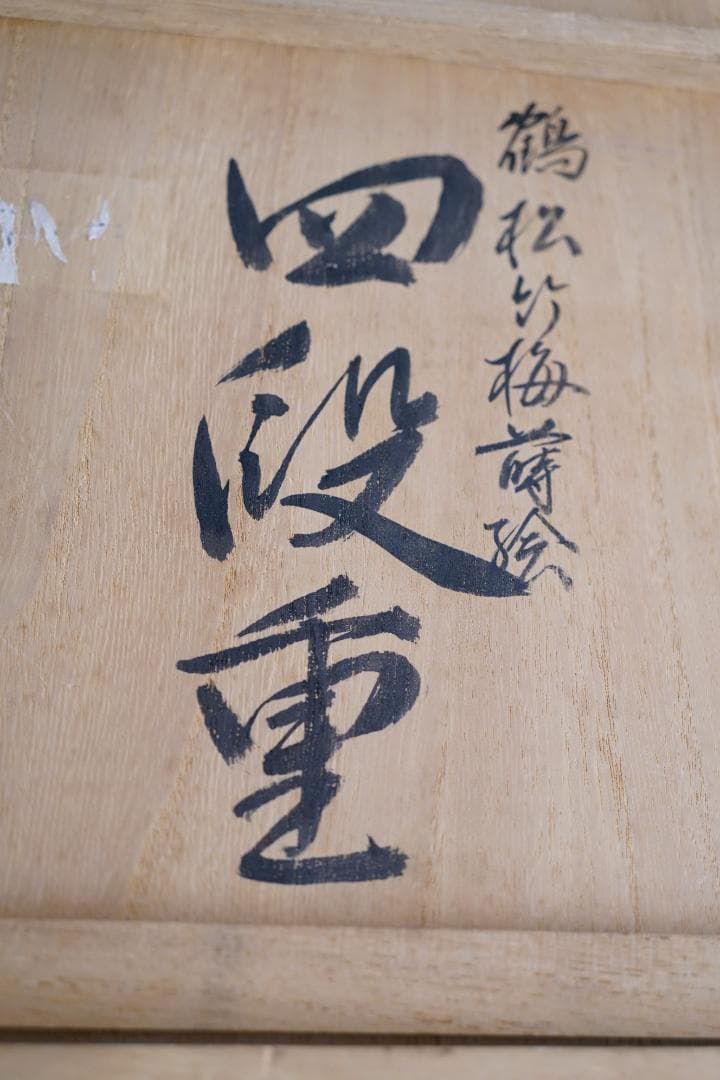 鶴松竹梅蒔絵
四段重